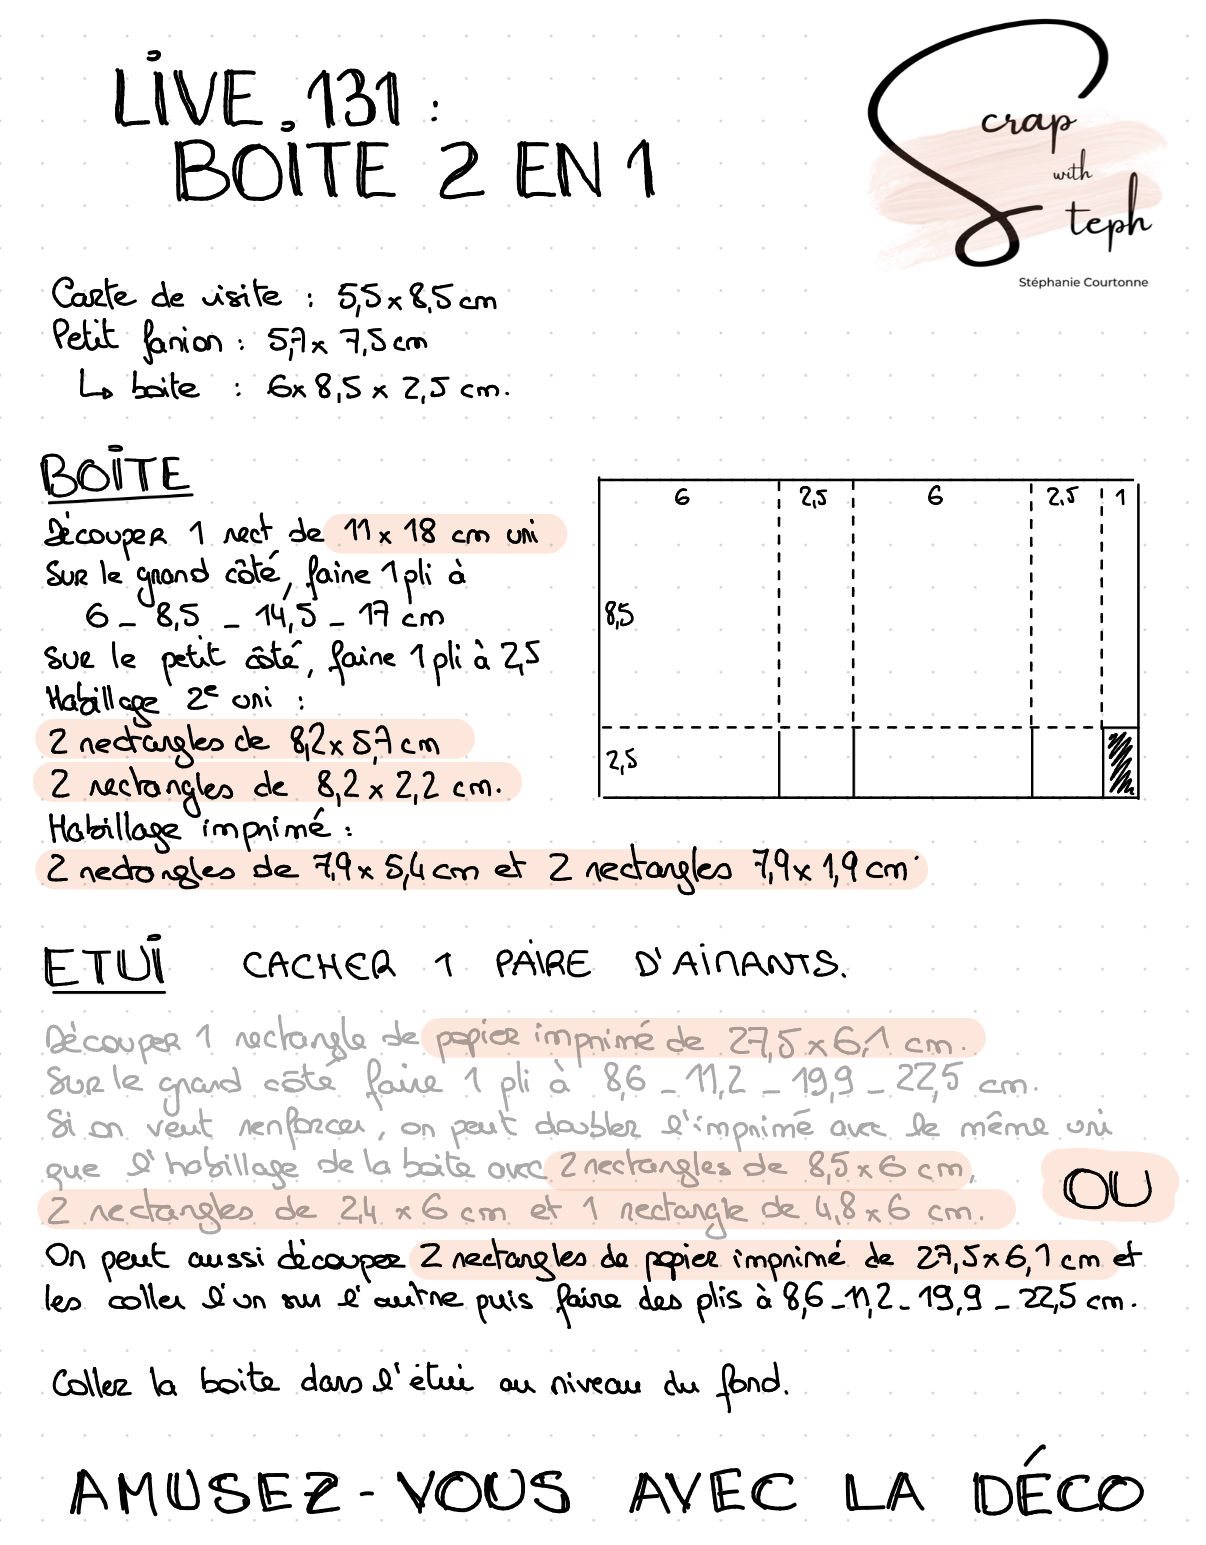 LIVE.131 :
BOITE 2 EN 1
Scrap
with
Steph
Stéphanie Courtonne
Carte de visite : 5,5 x 8,5 cm
Petit fanion : 5,7 x 7,5 cm
↳ boite : 6 x 8,5 x 2,5 cm.
BOITE
Découper 1 rect de 11 x 18 cm uni
Sur le grand côté, faire 1 pli à
6 _ 8,5 _ 14,5 _ 17 cm
Sur le petit côté, faire 1 pli à 2,5
Habillage 2e uni :
2 rectangles de 8,2 x 5,7 cm
2 rectangles de 8,2 x 2,2 cm.
Habillage imprimé :
2 rectangles de 7,9 x 5,4 cm et 2 rectangles 7,9 x 1,9 cm.
6 2,5 6 2,5 1
8,5
2,5
ETUI CACHER 1 PAIRE D'AIMANTS.
Découper 1 rectangle de papier imprimé de 27,5 x 6,1 cm.
Sur le grand côté faire 1 pli à 8,6 _ 11,2 _ 19,9 _ 22,5 cm.
Si on veut renforcer, on peut doubler l'imprimé avec le même uni
que l'habillage de la boite avec 2 rectangles de 8,5 x 6 cm,
2 rectangles de 2,4 x 6 cm et 1 rectangle de 4,8 x 6 cm.
OU
On peut aussi découper 2 rectangles de papier imprimé de 27,5 x 6,1 cm et
les coller l'un sur l'autre puis faire des plis à 8,6 _ 11,2 _ 19,9 _ 22,5 cm.
Coller la boite dans l'étui au niveau du fond.
AMUSEZ-VOUS AVEC LA DÉCO